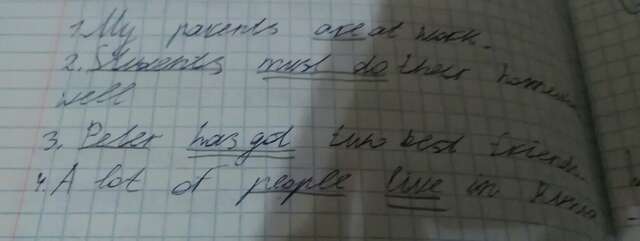 1. My parents are at work.
2. Students must do their
well
3. Peter has got two best
4. A lot of people live in